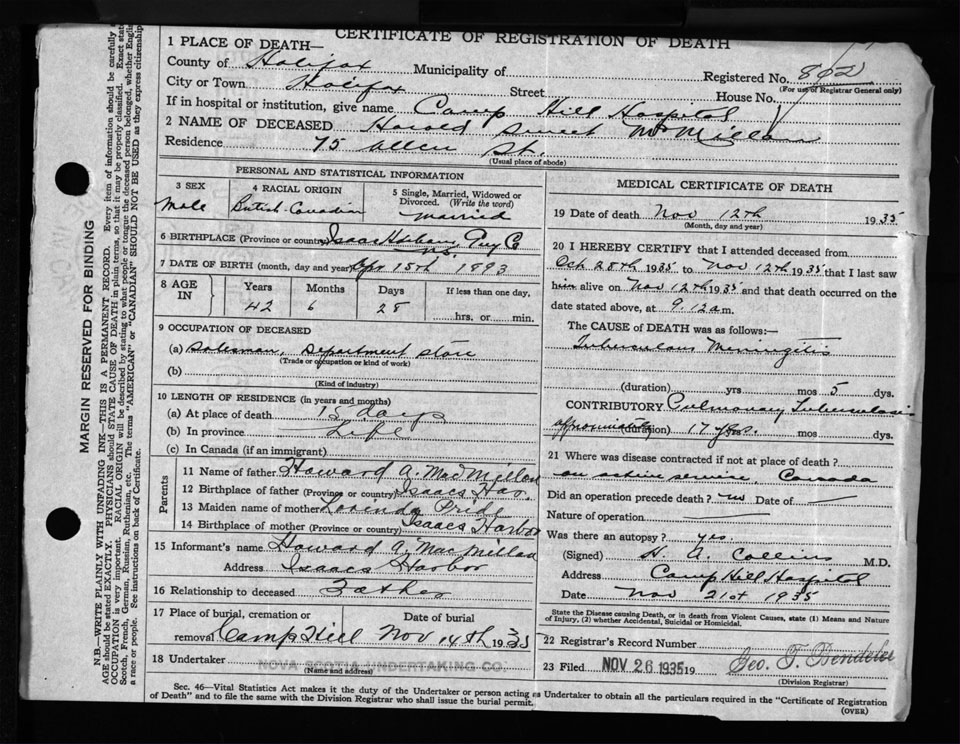 CERTIFICATE OF REGISTRATION OF DEATH
1 PLACE OF DEATH—
County of Halifax Municipality of Registered No. 862
(For use of Registrar General only)
City or Town Halifax Street House No.
If in hospital or institution, give name Camp Hill Hospital
2 NAME OF DECEASED Harold Sweet McMillan
Residence 75 Allen St.
(Usual place of abode)
PERSONAL AND STATISTICAL INFORMATION
3 SEX
Male
4 RACIAL ORIGIN
British-Canadian
5 Single, Married, Widowed or
Divorced. (Write the word)
married
6 BIRTHPLACE (Province or country) Isaacs Harbour, Guy Co
N.S.
7 DATE OF BIRTH (month, day and year) Apr 15th 1893
8 AGE
IN
Years Months Days If less than one day,
42 6 28 hrs. or min.
9 OCCUPATION OF DECEASED
(a) Salesman, Department store
(Trade or occupation or kind of work)
(b)
(Kind of industry)
10 LENGTH OF RESIDENCE (in years and months)
(a) At place of death 15 days
(b) In province Life
(c) In Canada (if an immigrant)
Parents
11 Name of father Howard A. MacMillan
12 Birthplace of father (Province or country) Isaacs Har.
13 Maiden name of mother Lorinda Pride
14 Birthplace of mother (Province or country) Isaacs Harbor
15 Informant's name Howard A. MacMillan
Address Isaacs Harbor
16 Relationship to deceased Father
17 Place of burial, cremation or Date of burial
removal Camp Hill Nov 14th 1935
18 Undertaker NOVA SCOTIA UNDERTAKING CO.
(Name and address)
MEDICAL CERTIFICATE OF DEATH
19 Date of death Nov 12th 1935
(Month, day and year)
20 I HEREBY CERTIFY that I attended deceased from
Oct 28th 1935 to Nov 12th 1935 that I last saw
him alive on Nov 12th 1935 and that death occurred on the
date stated above, at 9.12 a m.
The CAUSE of DEATH was as follows:—
Tuberculous Meningitis
(duration) yrs mos 5 dys.
CONTRIBUTORY Pulmonary Tuberculosis
approximately (duration) 17 yrs. mos dys.
21 Where was disease contracted if not at place of death?
on active service, Canada
Did an operation precede death? no Date of —
Nature of operation —
Was there an autopsy? yes.
(Signed) H. A. Collins M.D.
Address Camp Hill Hospital
Date Nov 21st 1935
State the Disease causing Death, or in death from Violent Causes, state (1) Means and
Nature of Injury, (2) whether Accidental, Suicidal or Homicidal.
22 Registrar's Record Number
23 Filed NOV 26 1935 19
(Division Registrar)
Sec. 46—Vital Statistics Act makes it the duty of the Undertaker or person acting as Undertaker to obtain all the particulars required in the "Certificate of Registration
of Death" and to file the same with the Division Registrar who shall issue the burial permit.
(OVER)
MARGIN RESERVED FOR BINDING
N.B.—WRITE PLAINLY WITH UNFADING INK—THIS IS A PERMANENT RECORD. Every item of information should be carefully
AGE should be stated EXACTLY. PHYSICIANS should STATE CAUSE OF DEATH in plain terms, so that it may be properly classified. Exact
OCCUPATION is very important. RACIAL ORIGIN will be described by stating to what people or tongue the deceased person belonged, whether
Scotch, French, German, Russian, Ruthenian, etc. The terms "AMERICAN" or "CANADIAN" SHOULD NOT BE USED as they express citizenship
a race or people. See instructions on back of Certificate.